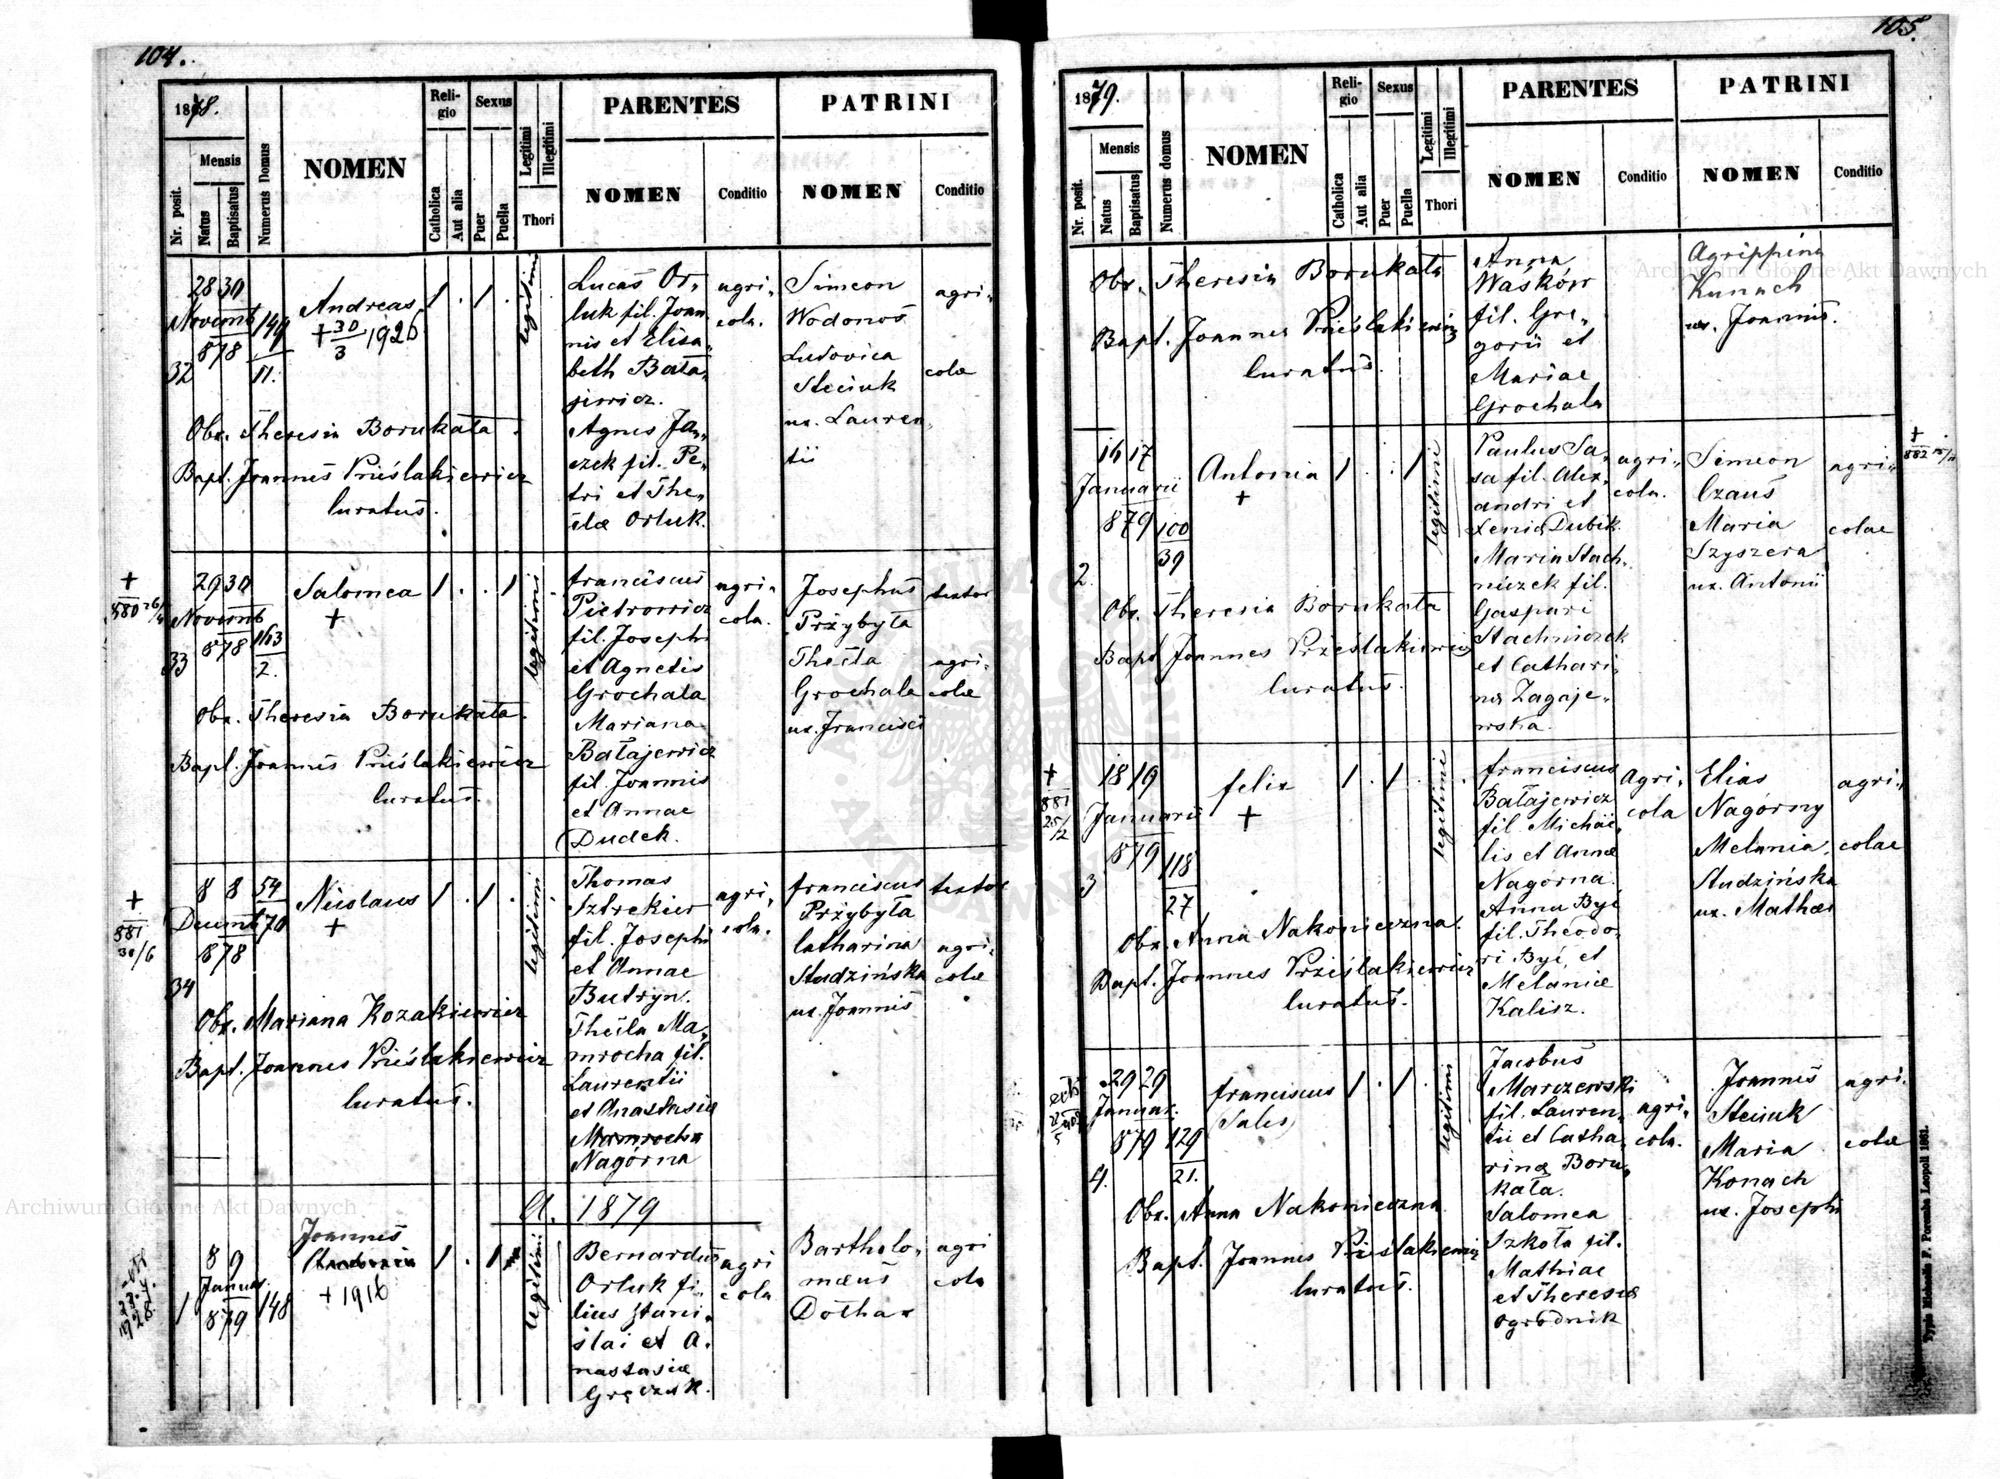 104.
1878.
Nr. posit.
Mensis
Natus
Baptisatus
Numerus Domus
NOMEN
Religio
Catholica
Aut alia
Sexus
Puer
Puella
Legitimi
Illegitimi
Thori
PARENTES
NOMEN
Conditio
PATRINI
NOMEN
Conditio
32
28 30
Novemb
878
149
11.
Andreas
+ 30/3 1926
1 . 1 .
legitimi
Lucas Or-
luk fil. Joan
nis et Elisa-
beth Bała-
jewicz.
Agnes Jan-
czek fil. Pe-
tri et The-
clæ Orluk.
agri-
cola.
Simeon
Wodonos
Ludovica
Steciuk
ux. Lauren-
tii
agri-
colæ
Obx. Theresia Borukała.
Bapt. Joannes Prieślakiewicz
Curatus.
+
880 26/4
33
29 30
Novemb
878
163
2.
Salomea
+
1 . . 1
legitimi
Franciscus
Pietrowicz
fil. Josephi
et Agnetis
Grochala
Mariana
Bałajewicz
fil. Joannis
et Annae
Dudek.
agri-
cola.
Josephus
Przybyła
Thecla
Grochala
ux. Francisci
textor
agri-
colæ
Obx. Theresia Borukała.
Bapt. Joannes Prieślakiewicz
Curatus.
+
881
30/6
34
8 8
Decemb
878
54
70
Nicolaus
+
1 . 1 .
legitimi
Thomas
Sztrekier
fil. Josephi
et Annae
Butryn.
Thecla Ma-
mrocha fil.
Laurentii
et Anastasiæ
Mamrocha
Nagórna
agri-
cola.
Franciscus
Przybyła
Catharina
Studzińska
ux. Joannis
textor
agri-
colæ
Obx. Mariana Kozakiewicz
Bapt. Joannes Prieślakiewicz
Curatus.
A. 1879
1
8 9
Januar.
879
148
Joannes
+ 1916
1 . 1
legitimi
Bernardus
Orluk fi-
lius Stani-
slai et A-
nastasiæ
Gręczuk.
agri
cola
Bartholo-
mæus
Dothar
agri
cola
105.
1879.
Nr. posit.
Mensis
Natus
Baptisatus
Numerus domus
NOMEN
Religio
Catholica
Aut alia
Sexus
Puer
Puella
Legitimi
Illegitimi
Thori
PARENTES
NOMEN
Conditio
PATRINI
NOMEN
Conditio
Obx. Theresia Borukała
Bapt. Joannes Prieślakiewicz
Curatus.
Anna
Waśków
fil. Gre-
gorii et
Mariae
Grochala
Agrippina
Kunach
ux. Joannis.
2.
16 17
Januarii
879
100
39
Antonia
+
1 . . 1
legitimi
Paulus Sa-
sa fil. Alex-
andri et
Xenia Dubik.
Maria Stach-
niczek fil.
Gaspari
Stachniczek
et Cathari-
næ Zagaje-
wska.
agri-
cola.
Simeon
Czaus
Maria
Szyszera
ux. Antonii
agri-
colae
Obx. Theresia Borukała
Bapt. Joannes Prześlakiewicz
Curatus.
+
881
25/2
3
18 19
Januarii
879
118
27
Felix
+
1 . 1 .
legitimi
Franciscus
Bałajewicz
fil. Michae-
lis et Annæ
Nagórna.
Anna Być
fil. Theodo-
ri Być, et
Melaniæ
Kalisz.
Agri-
cola
Elias
Nagórny
Melania
Studzińska
ux. Mathæi
agri-
colae
Obx. Anna Nakonieczna.
Bapt. Joannes Prieślakiewicz
Curatus.
4.
29 29
Januar.
879
129
21.
Franciscus
Sales
1 . 1 .
legitimi
Jacobus
Marczewski
fil. Lauren-
tii et Catha-
rinæ Boru-
kała.
Salomea
Szkoła fil.
Mathiae
et Theresiæ
Ogrodnik
agri-
cola.
Joannes
Steciuk
Maria
Konach
ux. Josephi
agri-
colæ
Obx. Anna Nakonieczna.
Bapt. Joannes Prieślakiewicz
Curatus.
Typis Michaelis F. Poremba Leopoli 1861.
Archiwum Główne Akt Dawnych
Archiwum Główne Akt Dawnych